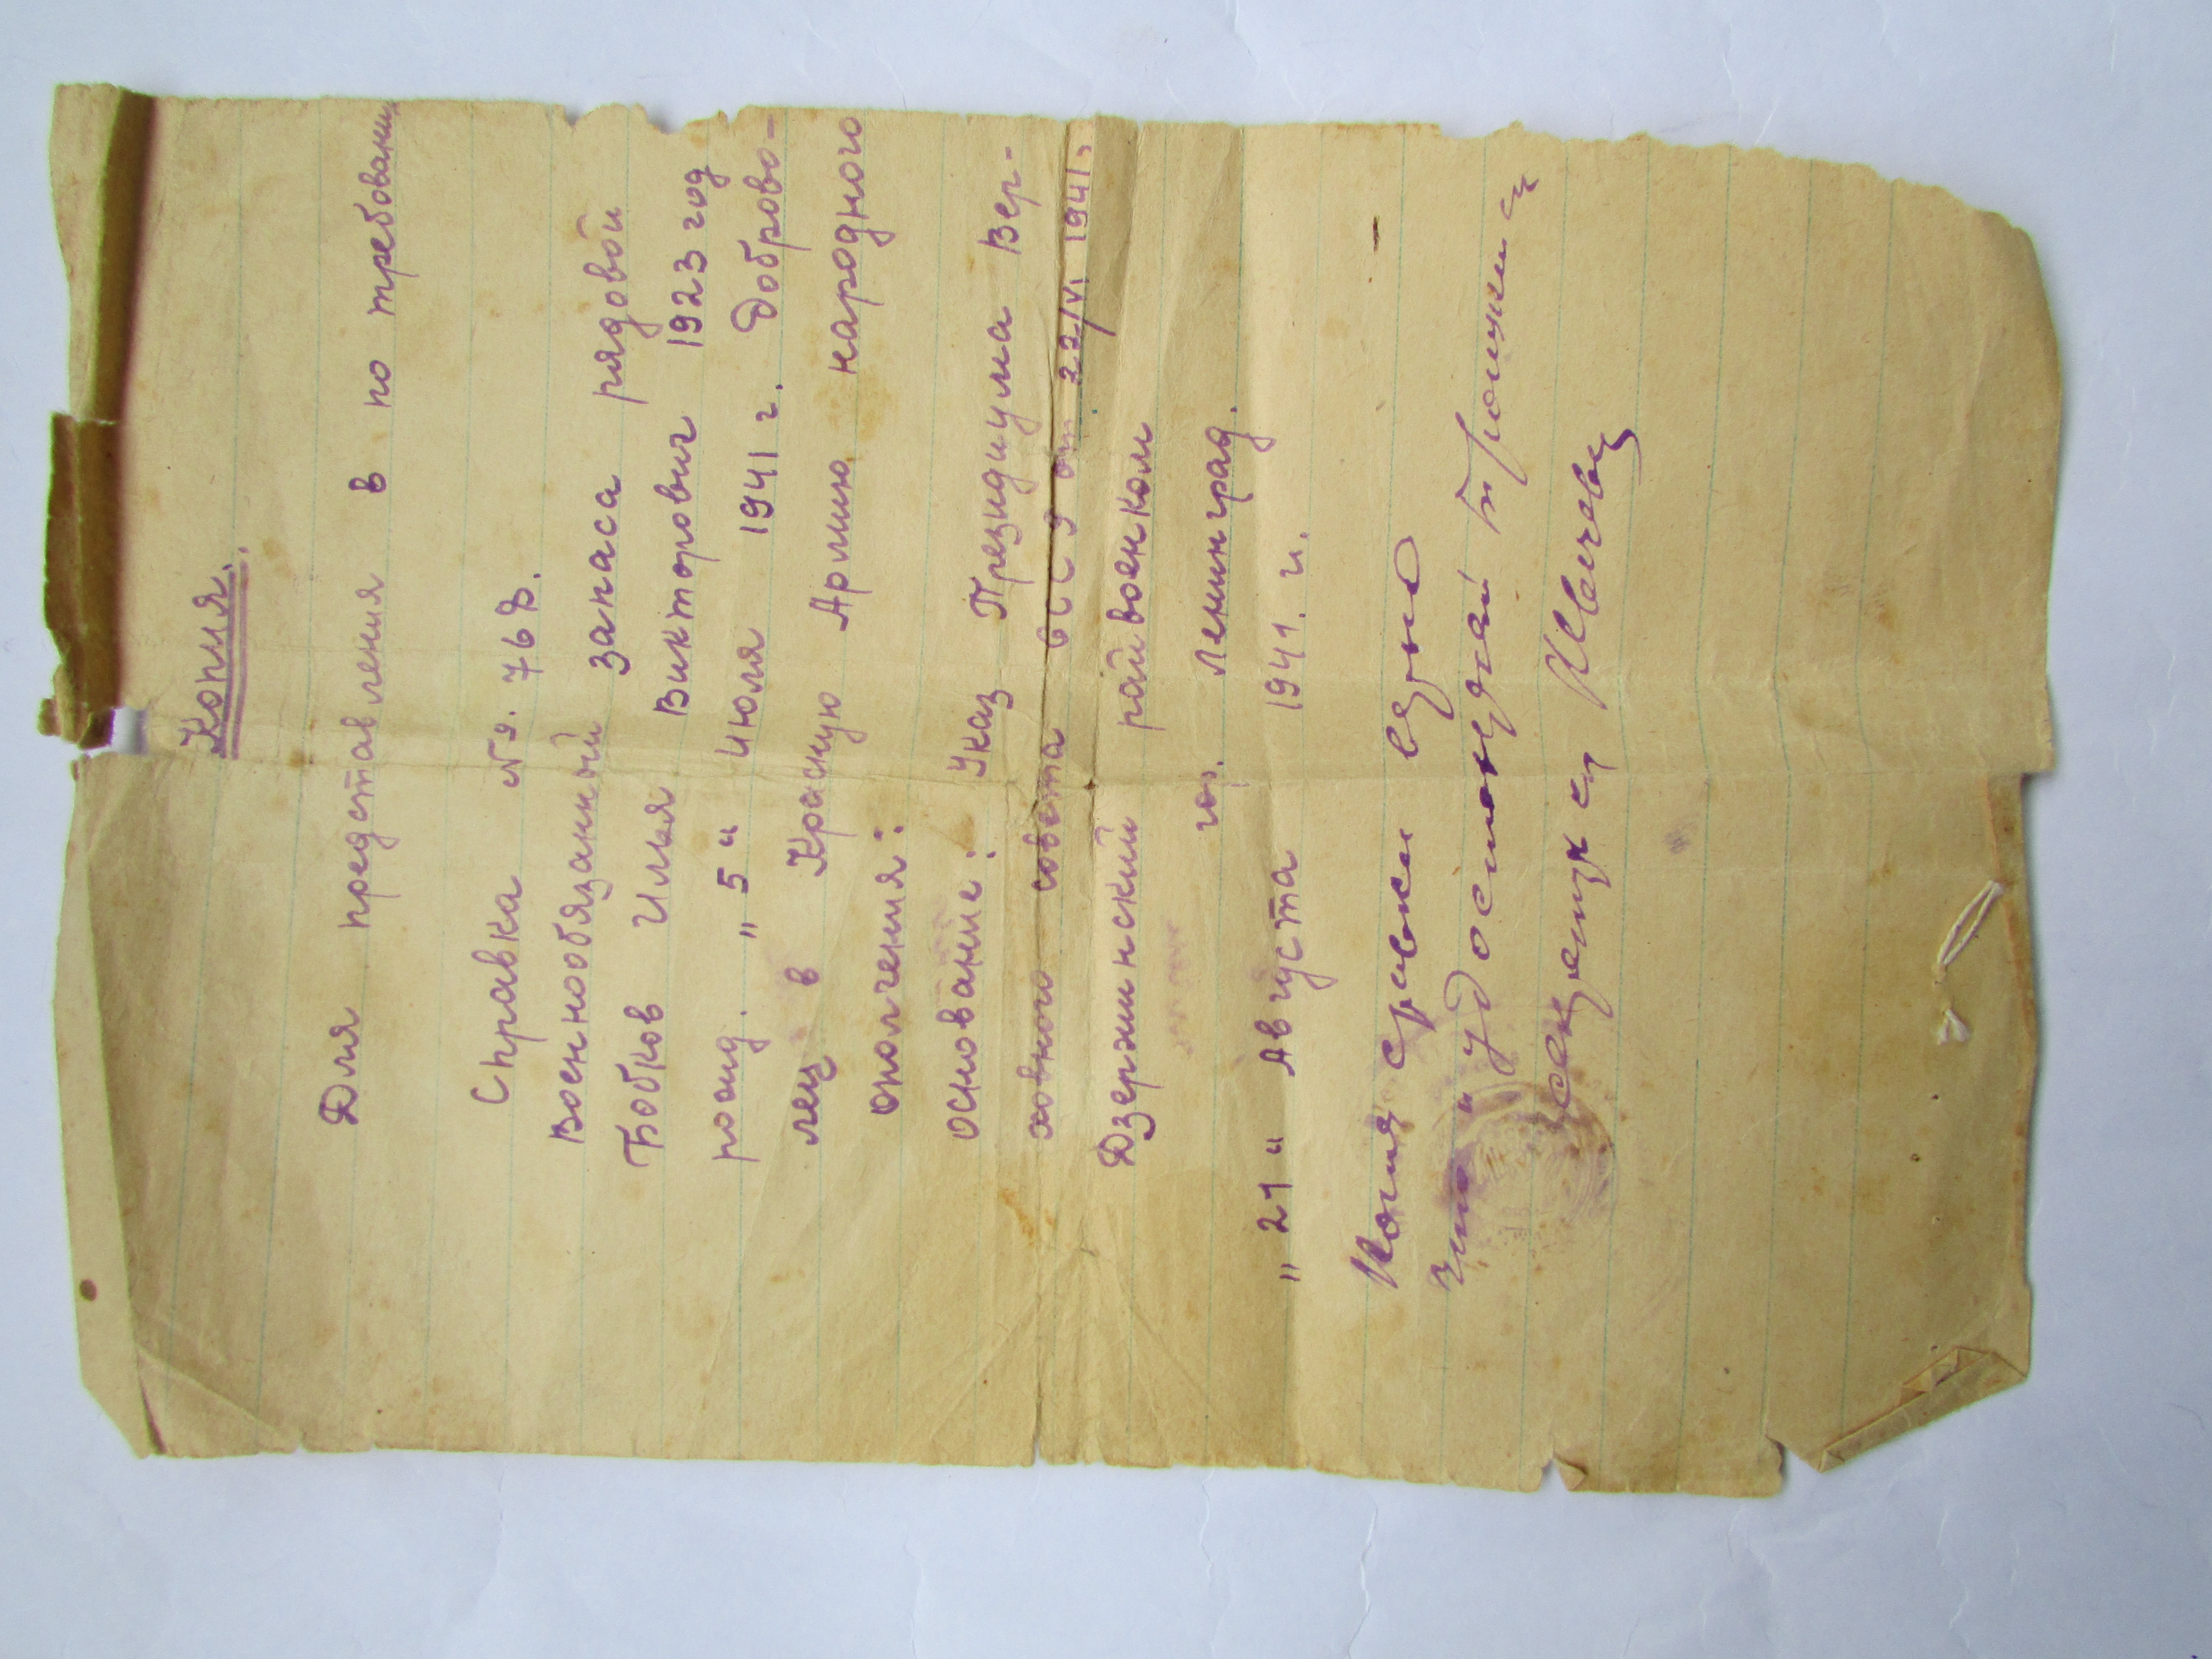 Копия.
Для представления в по требовани
Справка № 768.
Военнообязанный запаса рядовой
Бобков Илья Викторович 1923 год
рожд. "5" Июля 1941 г. Доброво-
лец в Красную Армию народного
ополчения:
основание: Указ Президиума Вер-
ховного совета СССР от 22/VI 1941,
Дзержинский райвоенком
гор. Ленинград.
"21" Августа 1941. г.
Копия верно